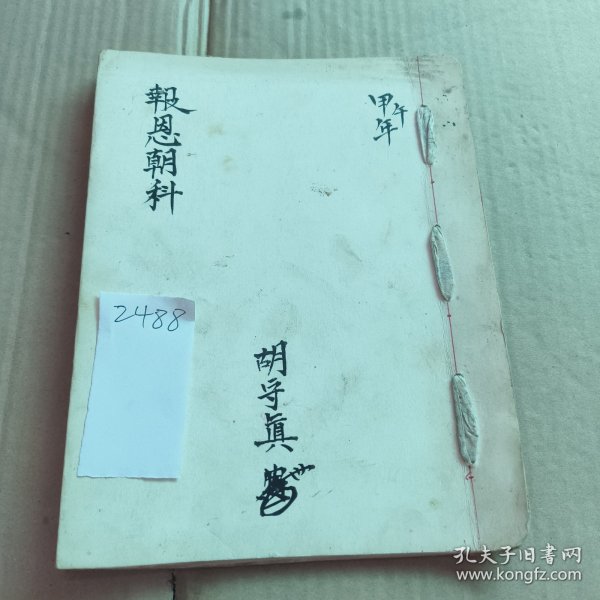 甲午年
報恩朝科
胡守真
2488
孔夫子旧書网
www.kongfz.com